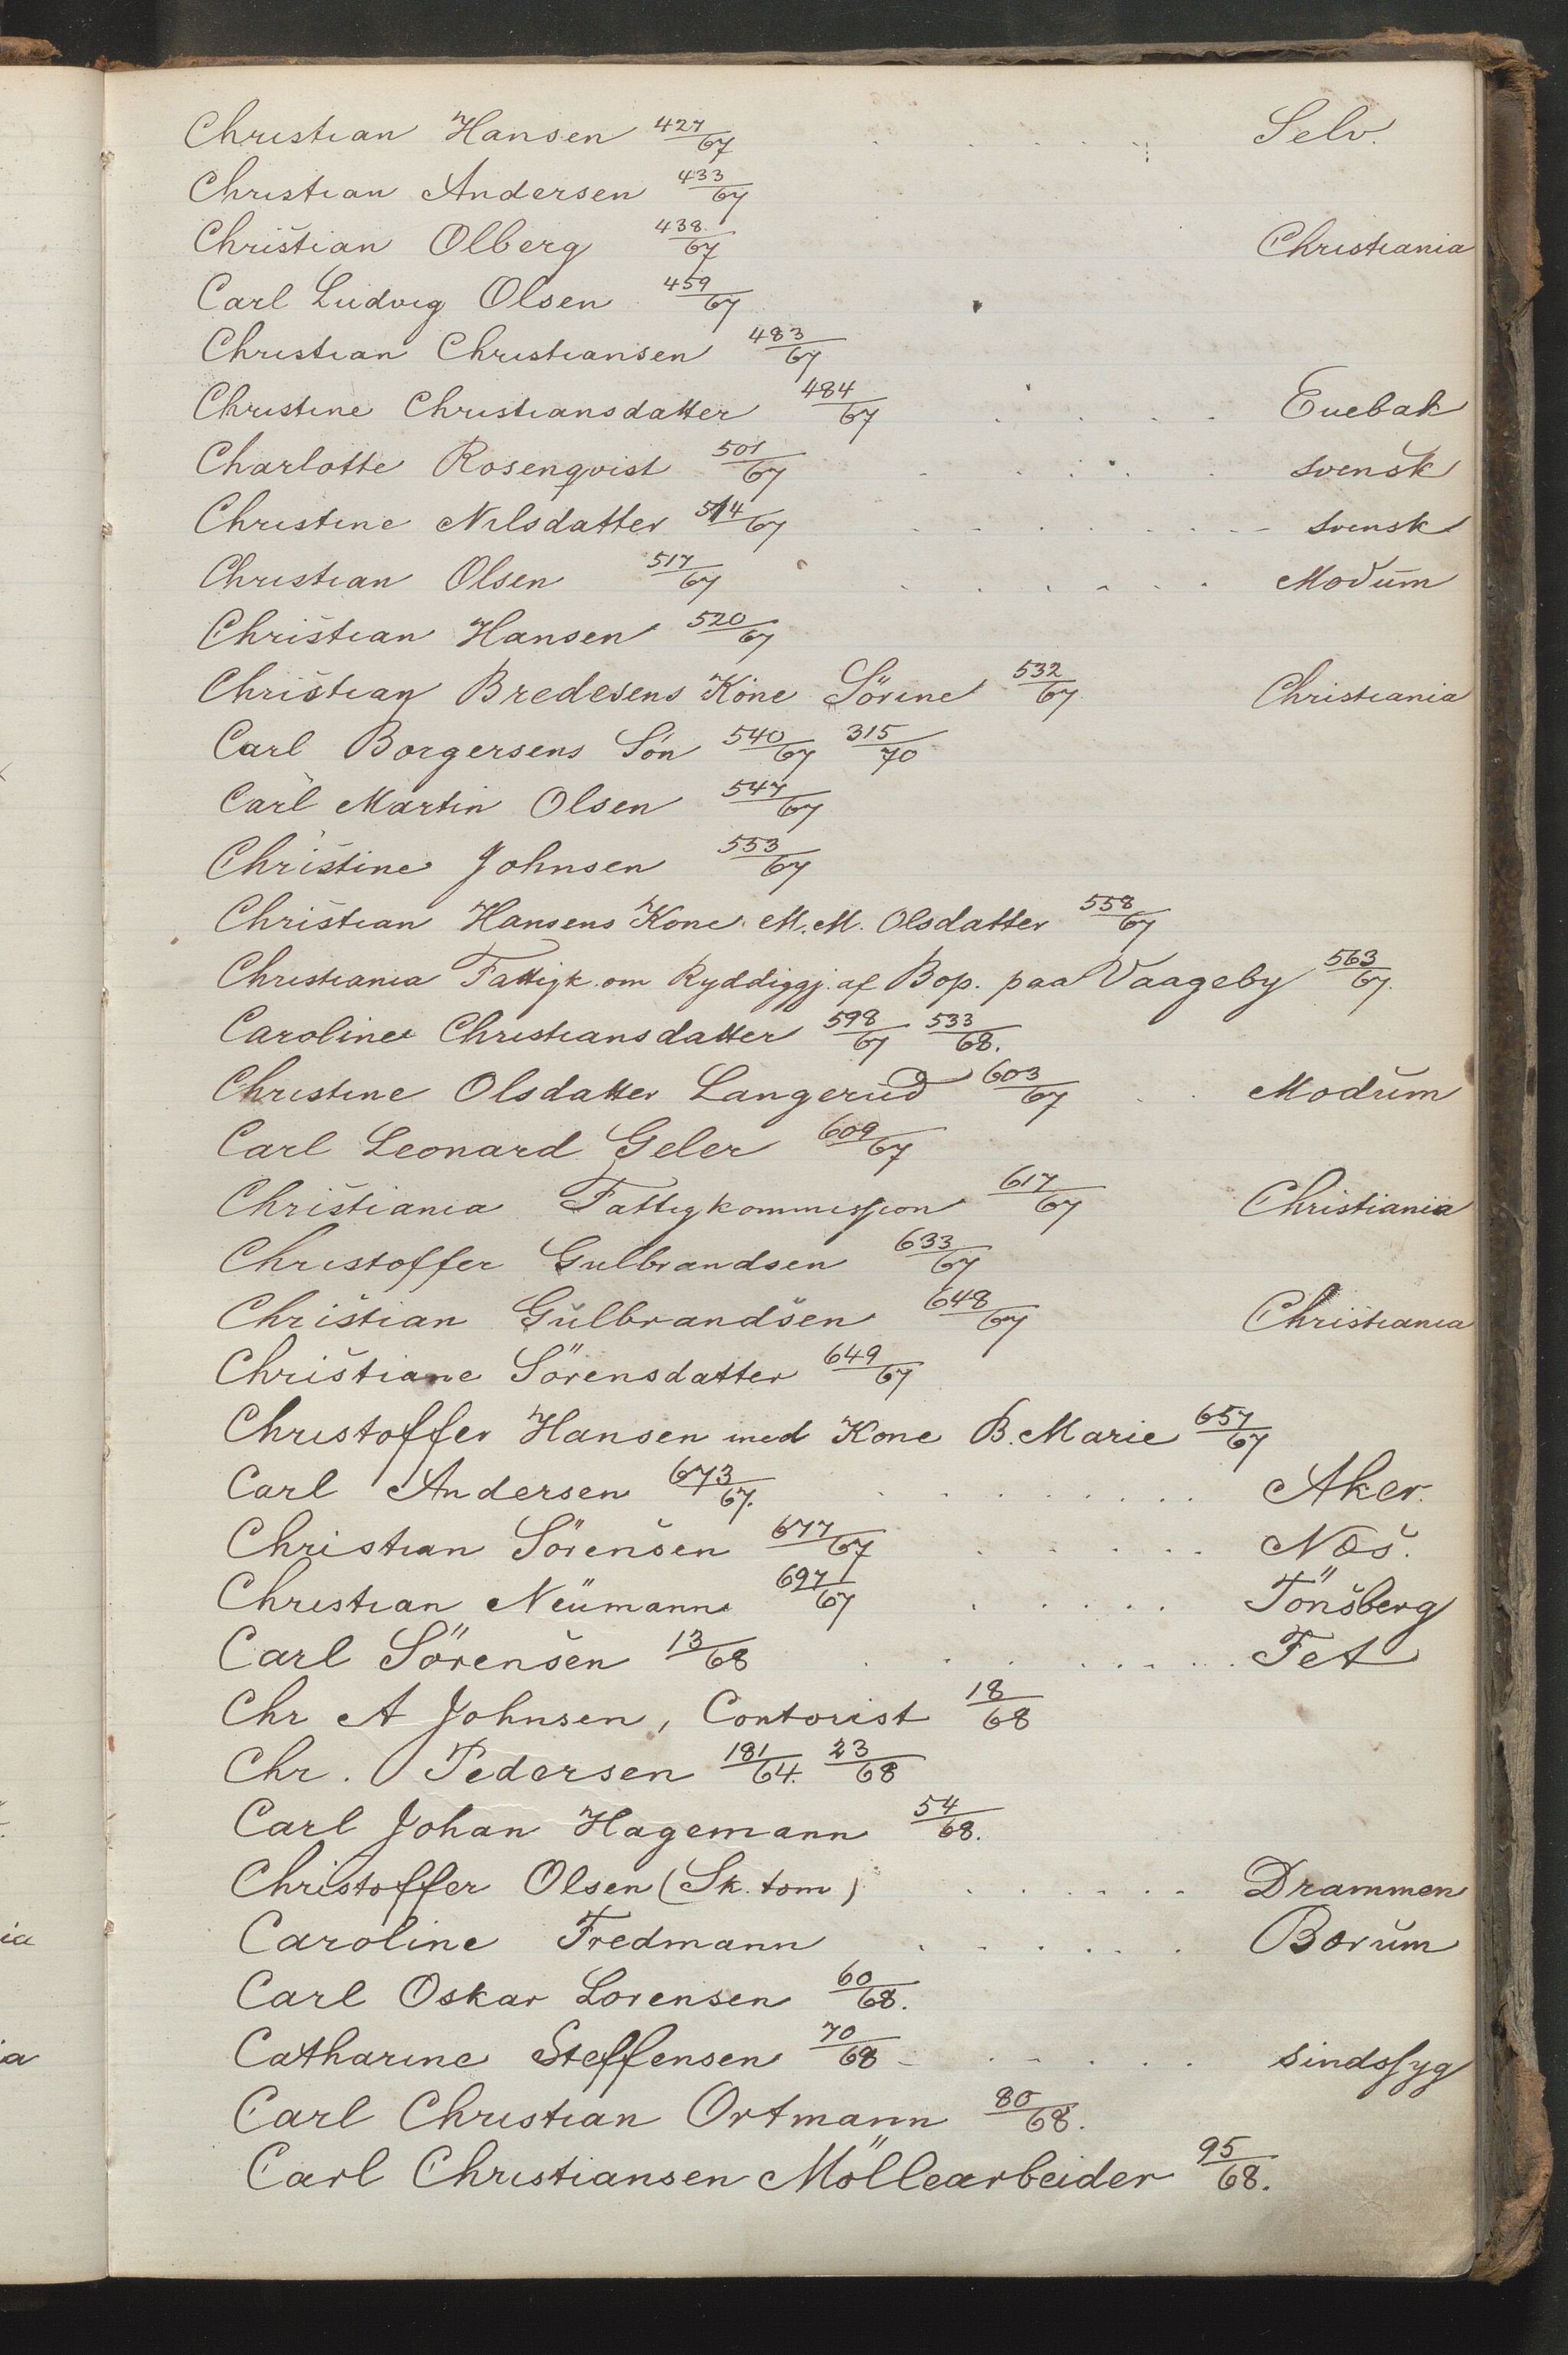 Christian Hansen 427/67 . . . . . . Selv.
Christian Andersen 433/67
Christian Olberg 438./67 Christiania
Carl Ludvig Olsen 459/67
Christian Christiansen 483/67
Christine Christiansdatter 484/67 . . . . Enebak
Charlotte Rosenqvist 501/67 . . . . . svensk
Christine Nilsdatter 514/67 . . . . . . . svensk
Christian Olsen 517/67 . . . . . . Modum
Christian Hansen 520/67
Christian Bredesens Kone Sörine 532/67 Christiania
Carl Borgersens Sön 540/67 315/70
Carl Martin Olsen 547/67
Christine Johnsen 553/67
Christian Hansens Kone M. M. Olsdatter 558/67
Christiania Fattigk. om Ryddiggj. af Bop. paa Vaageby 563/67.
Caroline Christiansdatter 598/67 533/68.
Christine Olsdatter Langerud 603/67 . . Modum
Carl Leonard Geler 609/67
Christiania Fattigkommission 617/67 Christiania
Christoffer Gulbrandsen 633/67
Christian Gulbrandsen 648/67 Christiania
Christiane Sörensdatter 649/67
Christoffer Hansen med Kone B. Marie 657/67
Carl Andersen 673/67. . . . . . . . . Aker.
Christian Sörensen 677/67 . . . . . Næs.
Christian Neumann 697/67 . . . . . Tönsberg
Carl Sörensen 13/68 . . . . . . . . Fet
Chr A Johnsen, Contorist 18/68
Chr. Pedersen 181/64. 23/68
Carl Johan Hagemann 54/68.
Christoffer Olsen (Sk. tom) . . . . . . Drammen
Caroline Fredmann . . . . . . Bærum
Carl Oskar Lorensen 60/68.
Catharine Steffensen 70/68 . . . . . sindssyg
Carl Christian Ortmann 80/68.
Carl Christiansen Möllearbeider 95/68.